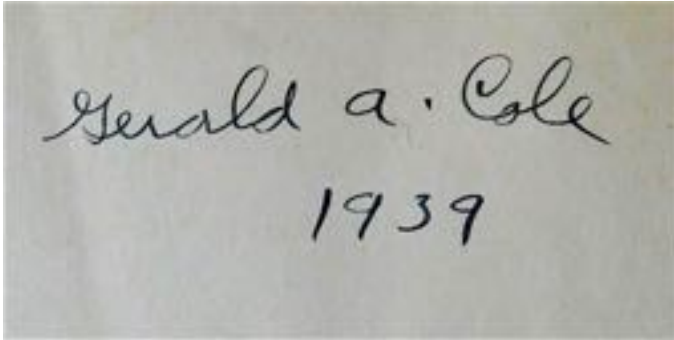 Gerald A. Cole
1939